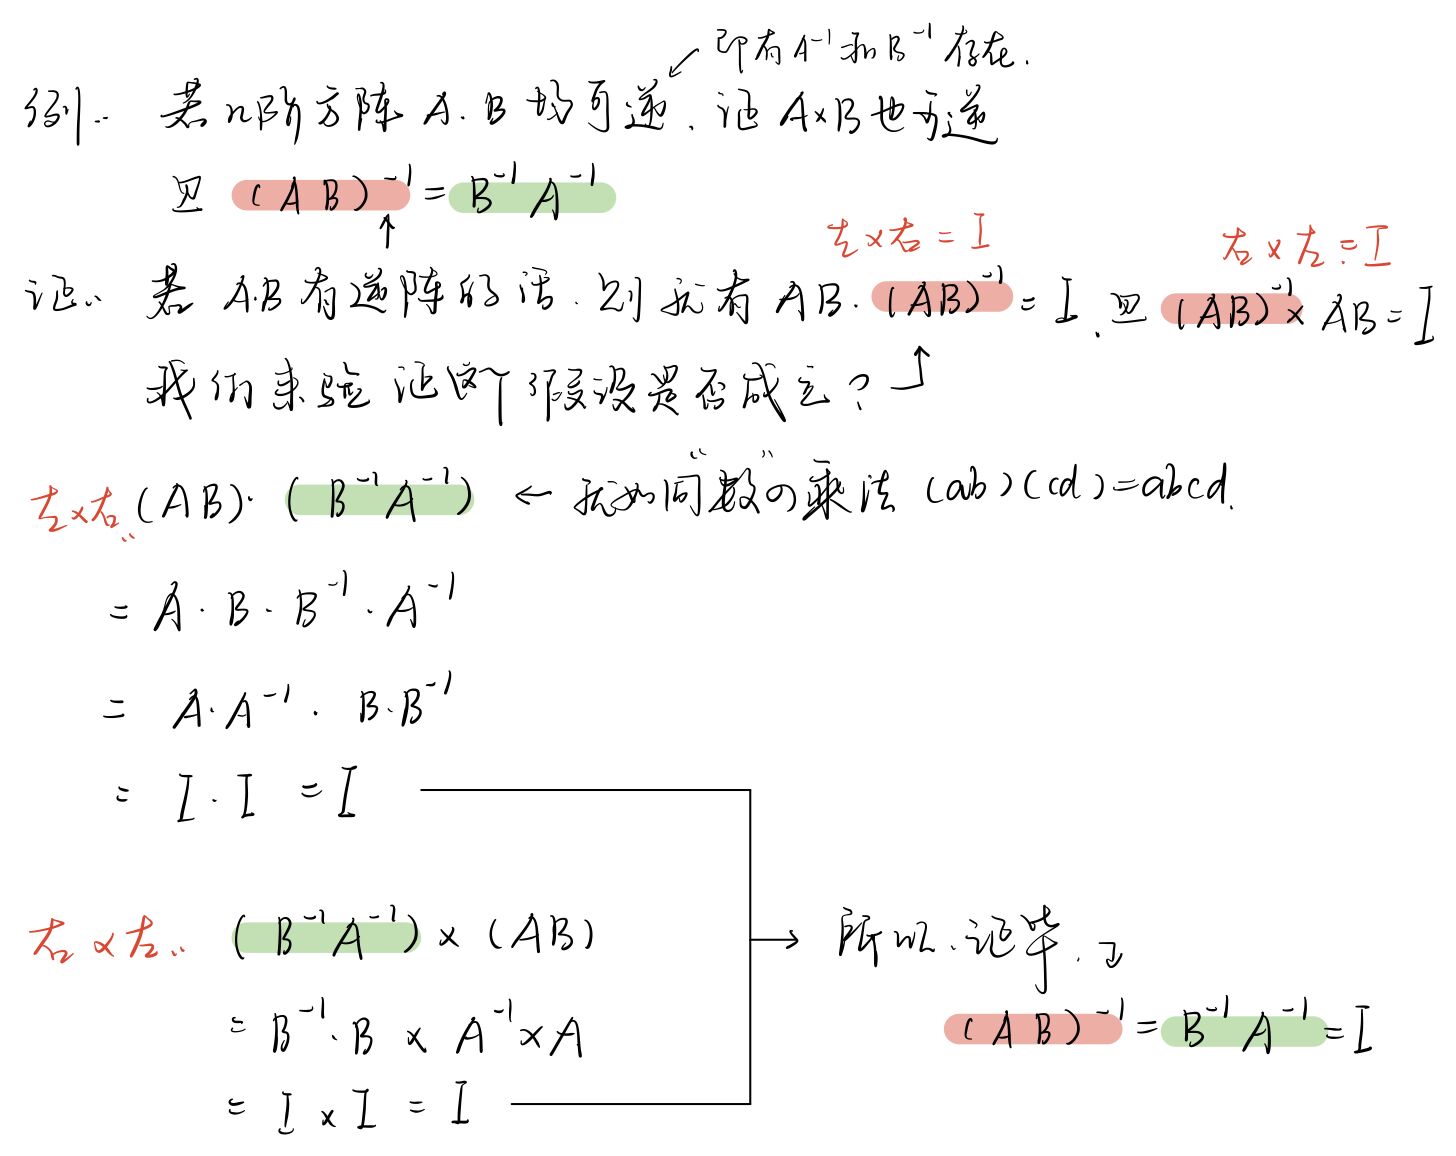 即有A⁻¹和B⁻¹存在.
例:. 若n阶方阵A.B均可逆.证A×B也可逆
且 (AB)⁻¹=B⁻¹A⁻¹
左×右=I
右×左=I
证:. 若A.B有逆阵的话.则就有AB.(AB)⁻¹=I.且(AB)⁻¹×AB=I
我们来验证这个假设是否成立?
左×右 (AB)·(B⁻¹A⁻¹) ← 就如同"数"の乘法 (ab)(cd)=abcd.
= A·B·B⁻¹·A⁻¹
= A·A⁻¹·B·B⁻¹
= I.I =I
右×左.. (B⁻¹A⁻¹)×(AB)
= B⁻¹·B×A⁻¹×A
= I×I=I
所以.证毕.
(AB)⁻¹=B⁻¹A⁻¹=I